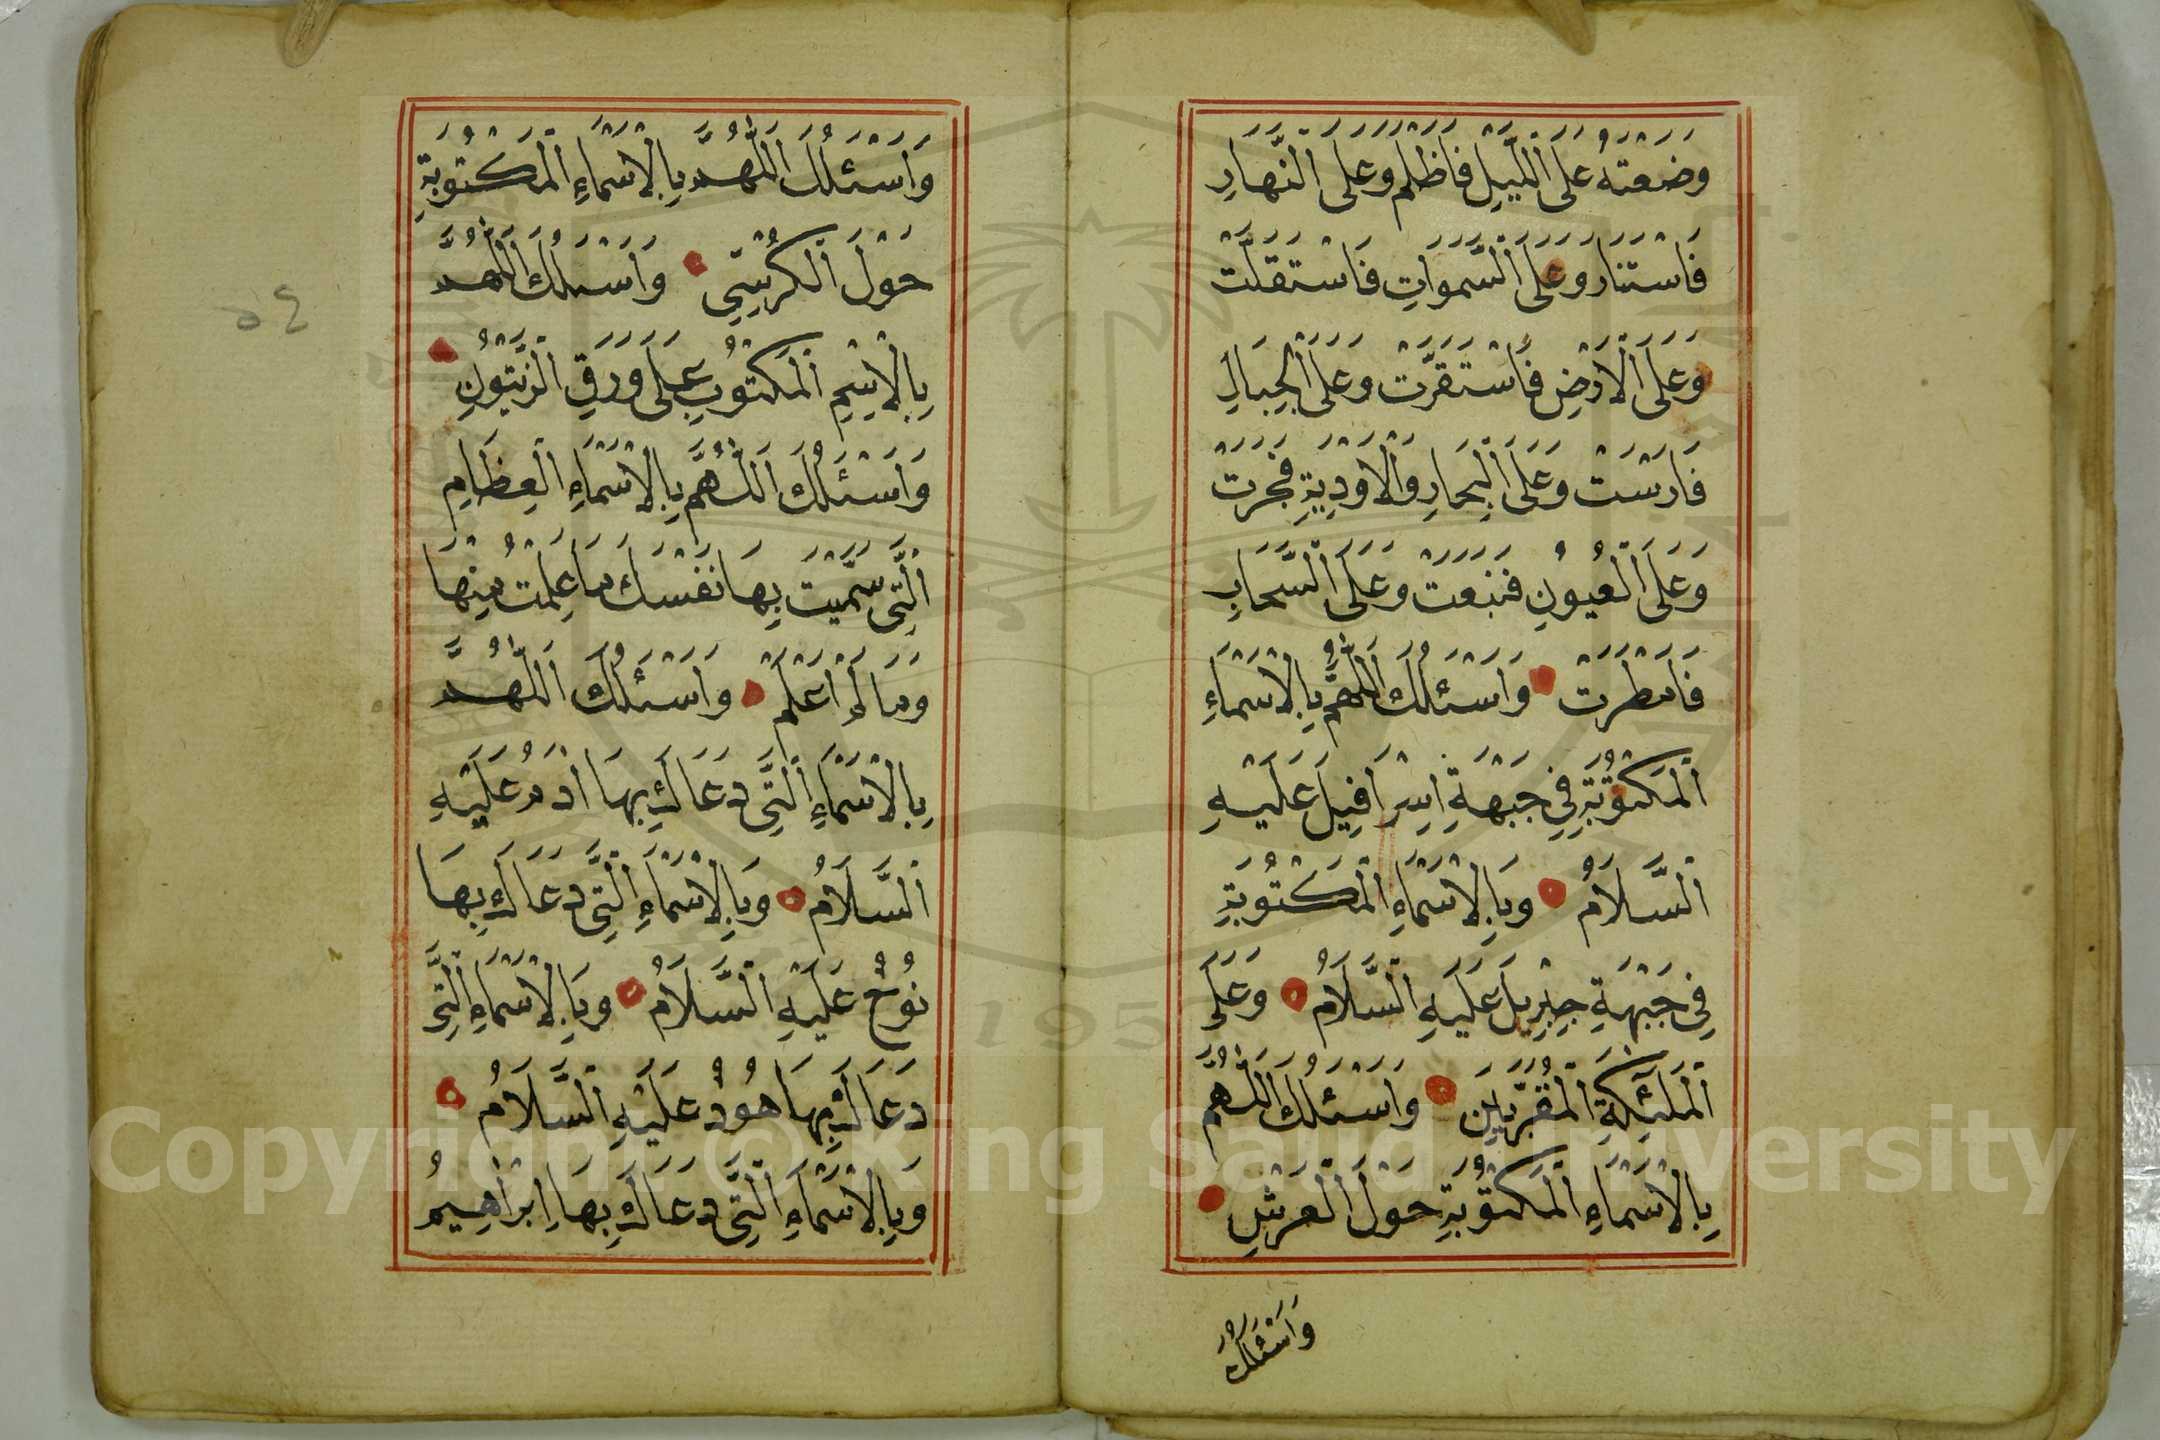 وَضَعْتَهُ عَلَى الَّيْلِ فَاَظْلَمَ وَعَلَى النَّهَارِ
فَاسْتَنَارَ وَعَلَى السَّمَوَاتِ فَاسْتَقَلَّتْ
وَعَلَى الْاَرْضِ فَاسْتَقَرَّتْ وَعَلَى الْجِبَالِ
فَارْسَتْ وَعَلَى الْبِحَارِ وَالْاَوْدِيَةِ فَجَرَتْ
وَعَلَى الْعُيُونِ فَنَبَعَتْ وَعَلَى السَّحَابِ
فَاَمْطَرَتْ وَاَسْئَلُكَ اللّٰهُمَّ بِالْاَسْمَاءِ
الْمَكْتُوبَةِ فِي جَبْهَةِ اِسْرَافِيلَ عَلَيْهِ
السَّلَامُ وَبِالْاَسْمَاءِ الْمَكْتُوبَةِ
فِي جَبْهَةِ جِبْرِيلَ عَلَيْهِ السَّلَامُ وَعَلَى
الْمَلٰئِكَةِ الْمُقَرَّبِينَ وَاَسْئَلُكَ اللّٰهُمَّ
بِالْاَسْمَاءِ الْمَكْتُوبَةِ حَوْلَ الْعَرْشِ
وَاَسْئَلُكَ
وَاَسْئَلُكَ اللّٰهُمَّ بِالْاَسْمَاءِ الْمَكْتُوبَةِ
حَوْلَ الْكُرْسِيِّ وَاَسْئَلُكَ اللّٰهُمَّ
بِالْاِسْمِ الْمَكْتُوبِ عَلَى وَرَقِ الزَّيْتُونِ
وَاَسْئَلُكَ اللّٰهُمَّ بِالْاَسْمَاءِ الْعِظَامِ
الَّتِي سَمَّيْتَ بِهَا نَفْسَكَ مَا عَلِمْتُ مِنْهَا
وَمَا لَمْ اَعْلَمْ وَاَسْئَلُكَ اللّٰهُمَّ
بِالْاَسْمَاءِ الَّتِي دَعَاكَ بِهَا اٰدَمُ عَلَيْهِ
السَّلَامُ وَبِالْاَسْمَاءِ الَّتِي دَعَاكَ بِهَا
نُوْحٌ عَلَيْهِ السَّلَامُ وَبِالْاَسْمَاءِ الَّتِي
دَعَاكَ بِهَا هُودٌ عَلَيْهِ السَّلَامُ
وَبِالْاَسْمَاءِ الَّتِي دَعَاكَ بِهَا اِبْرَاهِيمُ
٥٤
1957
Copyright © King Saud University